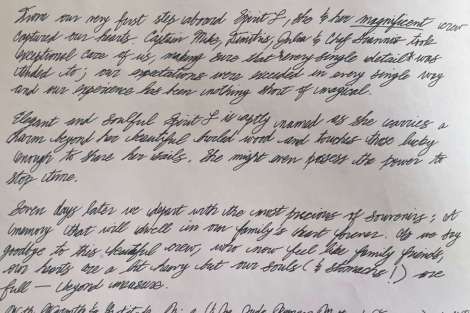 From our very first step aboard Spirit L, she & her magnificent crew
captured our hearts. Captain Mike, Dimitris, & Chef Giannis took
exceptional care of us, making sure that every single detail was
tended to; our expectations were exceeded in every single way
and our experience has been nothing short of magical.
Elegant and soulful Spirit L is aptly named as she carries a
charm beyond her beautiful wood and touches those lucky
enough to share her sails. She might even possess the power to
stop time.
Seven days later we depart with the most precious of souvenirs: a
memory that will dwell in our family's heart forever. As we say
goodbye to this beautiful crew, who now feel like family friends,
our hearts are a bit heavy but our souls (& stomachs!) are
full — beyond measure.